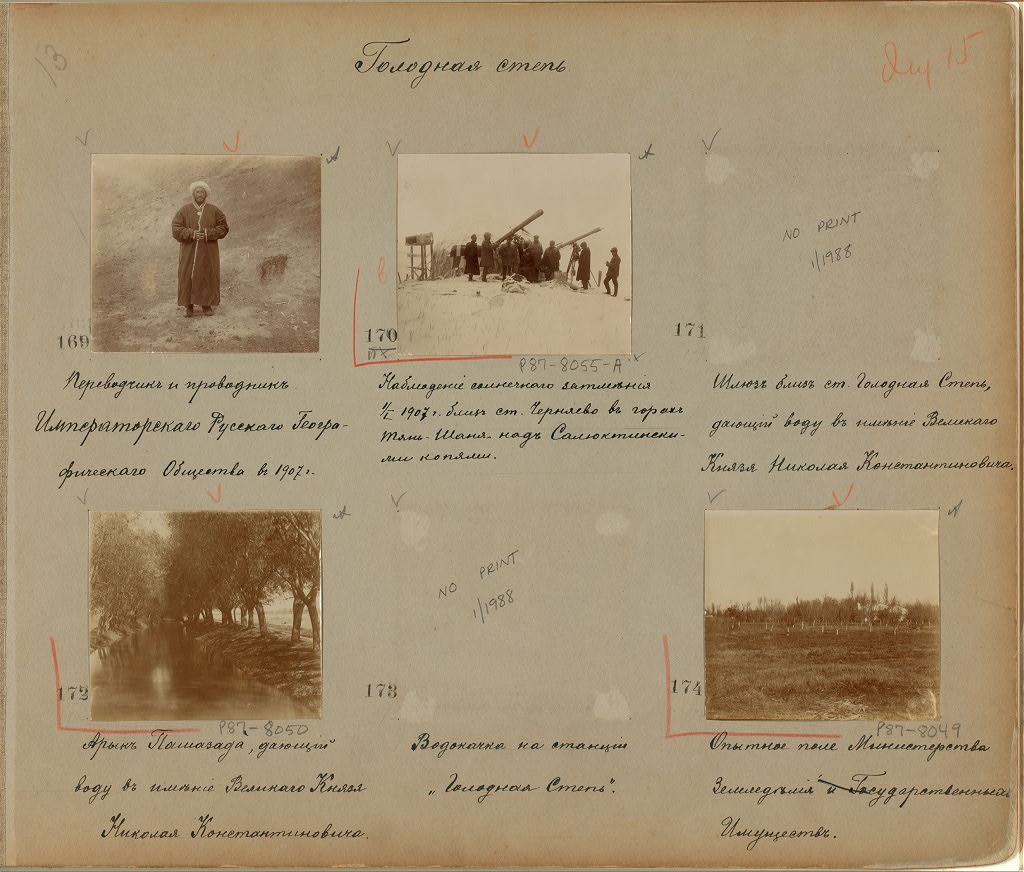 13
Голодная степь.
15
A
A
NO PRINT
1/1988
169
170
171
ПХ
P87-8055-A
Переводчикъ и проводникъ
Императорскаго Русскаго Геогра-
фическаго Общества въ 1907 г.
Наблюденіе солнечнаго затменія
1/I 1907 г. близъ ст. Черняево въ горахъ
Тянь-Шаня надъ Салюктински-
ми копями.
Шлюзъ близъ ст. Голодная Степь,
дающій воду въ имѣніе Великаго
Князя Николая Константиновича.
A
A
NO PRINT
1/1988
172
173
174
P87-8050
P87-8049
Арыкъ Пашазада, дающій
воду въ имѣніе Великаго Князя
Николая Константиновича.
Водокачка на станціи
„Голодная Степь".
Опытное поле Министерства
Земледѣлія и Государственныхъ
Имуществъ.